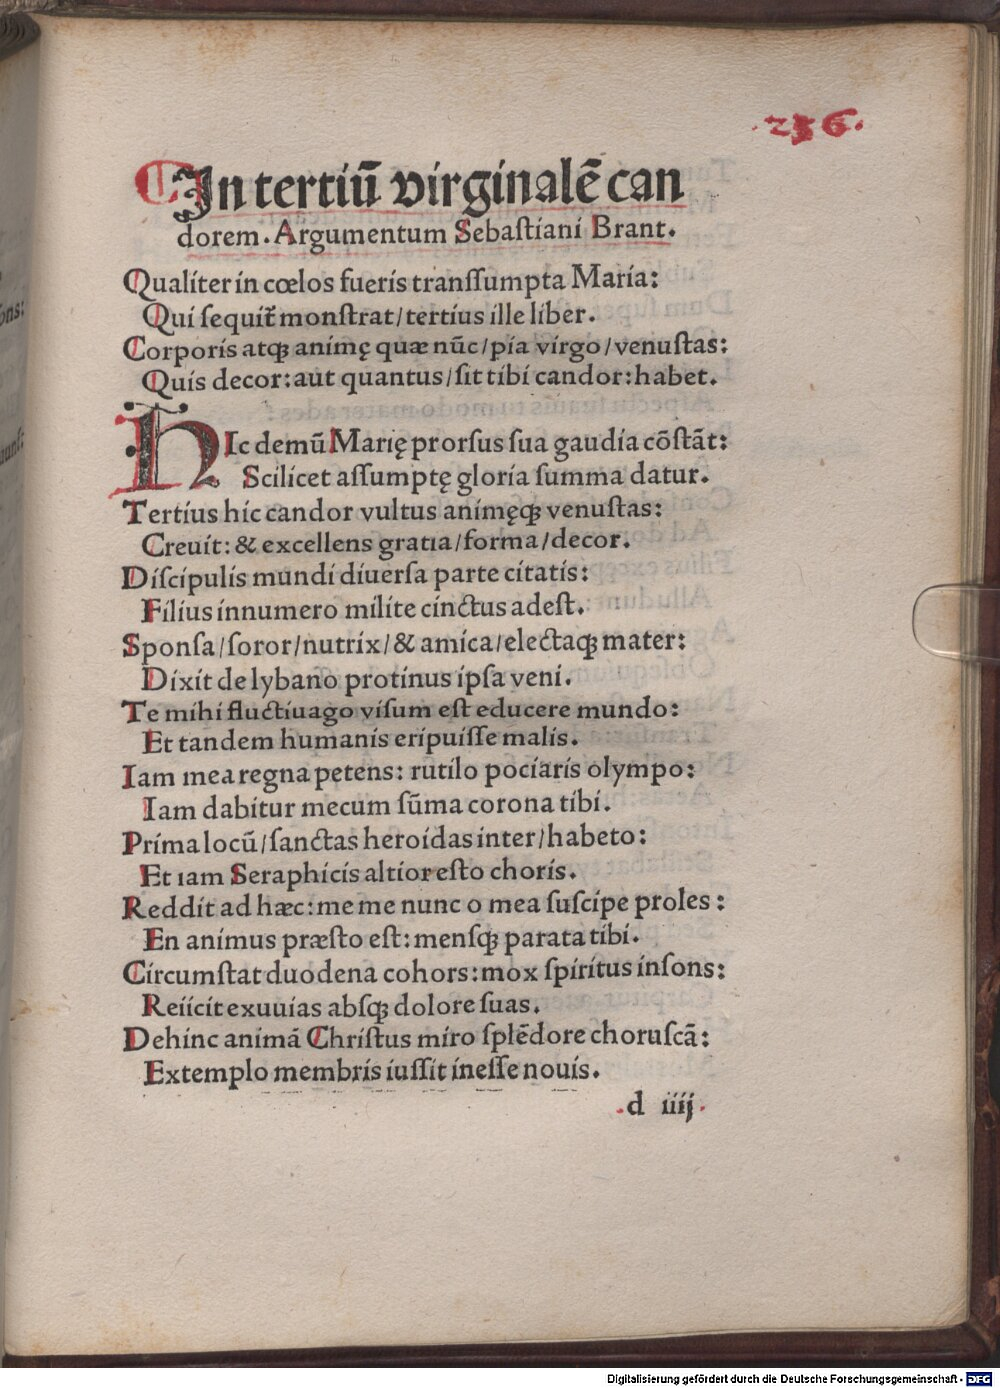 .236.
In tertiū virginalē can
dorem. Argumentum Sebaſtiani Brant.
Qualiter in cœlos fueris tranſſumpta Maria:
Qui ſequit̃ monſtrat/tertius ille liber.
Corporis atqꝫ animę quæ nūc/pia virgo/venuſtas:
Quis decor: aut quantus/ſit tibi candor: habet.
HIc demū Marię prorſus ſua gaudia cōſtāt:
Scilicet aſſumptę gloria ſumma datur.
Tertius hic candor vultus animęqꝫ venuſtas:
Creuit: & excellens gratia/forma/decor.
Diſcipulis mundi diuerſa parte citatis:
Filius innumero milite cinctus adeſt.
Sponſa/ſoror/nutrix/& amica/electaqꝫ mater:
Dixit de lybano protinus ipſa veni.
Te mihi fluctiuago viſum eſt educere mundo:
Et tandem humanis eripuiſſe malis.
Iam mea regna petens: rutilo pociaris olympo:
Iam dabitur mecum ſūma corona tibi.
Prima locū/ſanctas heroidas inter/habeto:
Et iam Seraphicis altior eſto choris.
Reddit ad hæc: me me nunc o mea ſuſcipe proles:
En animus præſto eſt: menſqꝫ parata tibi.
Circumſtat duodena cohors: mox ſpiritus inſons:
Reiicit exuuias abſqꝫ dolore ſuas.
Dehinc animā Chriſtus miro ſplēdore choruſcā:
Extemplo membris iuſſit ineſſe nouis.
.d iiij.
Digitalisierung gefördert durch die Deutsche Forschungsgemeinschaft - DFG